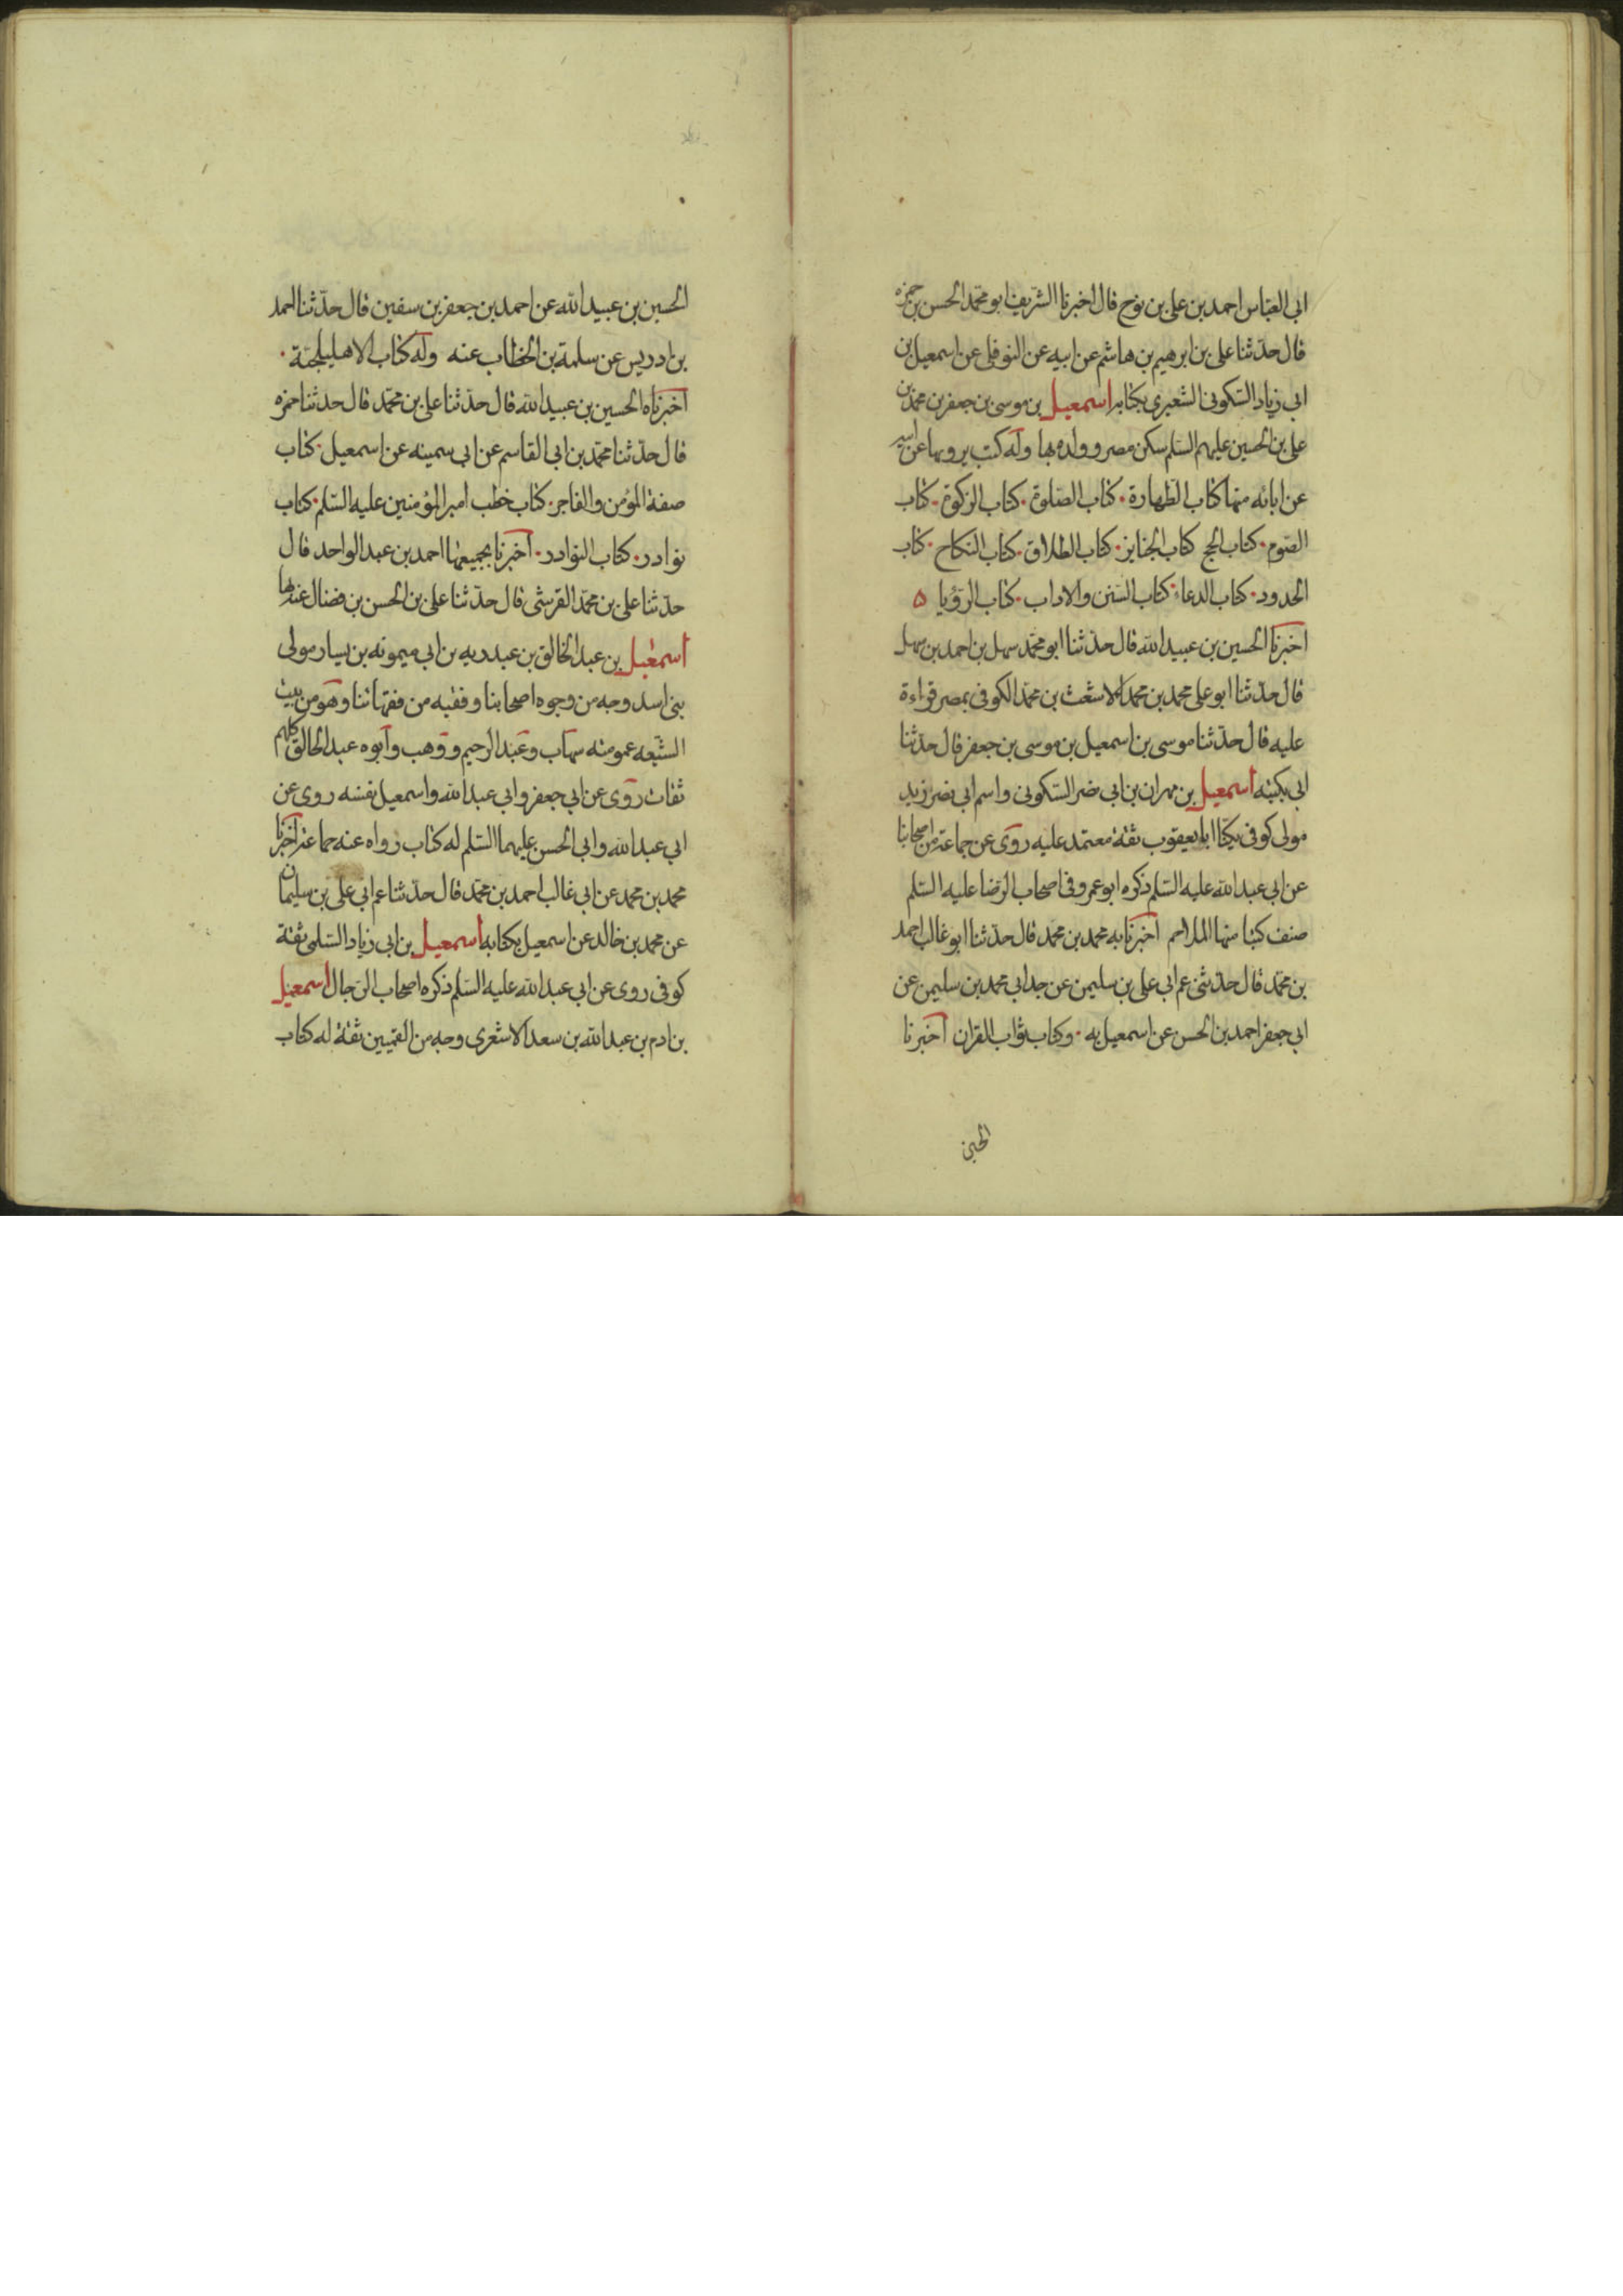 ابي العباس احمد بن علي بن نوح قال اخبرنا الشريف ابو محمد الحسن بن حمزه
قال حدثنا علي بن ابرهيم بن هاشم عن ابيه عن النوفلي عن اسمعيل بن
ابي زياد السكوني الشعيري بكتابه اسمعيل بن موسى بن جعفر بن محمد بن
علي بن الحسين عليهم السلم سكن مصر وولده بها وله كتب يرويها عن ابيه
عن ابائه منها كتاب الطهارة٠ كتاب الصلوة٠ كتاب الزكوة٠ كتاب
الصوم٠ كتاب الحج كتاب الجنايز٠ كتاب الطلاق٠ كتاب النكاح٠ كتاب
الحدود٠ كتاب الدعاء٠ كتاب السنن والاداب٠ كتاب الرؤيا ۵
اخبرنا الحسين بن عبيد الله قال حدثنا ابو محمد سهل بن احمد بن سهل
قال حدثنا ابو علي محمد بن محمد الاشعث بن محمد الكوفي بمصر قراءة
عليه قال حدثنا موسى بن اسمعيل بن موسى بن جعفر قال حدثنا
ابي بكتبه اسمعيل بن مهران بن ابي نصر السكوني واسم ابي نصر زيد
مولى كوفي يكنا ابا يعقوب ثقة معتمد عليه روى عن جماعة من اصحابنا
عن ابي عبد الله عليه السلم ذكره ابو عمرو في اصحاب الرضا عليه السلم
صنف كتبا منها الملاحم اخبرنا به محمد بن محمد قال حدثنا ابو غالب احمد
بن محمد قال حدثني عم ابي علي بن سليمن عن جد ابي محمد بن سليمن عن
ابي جعفر احمد بن الحسن عن اسمعيل به٠ وكتاب ثواب القران اخبرنا
الحسين
الحسين بن عبيد الله عن احمد بن جعفر بن سفين قال حدثنا احمد
بن ادريس عن سلمة بن الخطاب عنه وله كتاب الاهليلجة٠
اخبرناه الحسين بن عبيد الله قال حدثنا علي بن محمد قال حدثنا حمزه
قال حدثنا محمد بن ابي القاسم عن ابي سمينه عن اسمعيل٠ كتاب
صفة المؤمن والفاجر٠ كتاب خطب امير المؤمنين عليه السلم٠ كتاب
نوادر٠ كتاب النوادر٠ اخبرنا بجميعها احمد بن عبد الواحد قال
حدثنا علي بن محمد القرشي قال حدثنا علي بن الحسن بن فضال عنه بها
اسمعيل بن عبد الخالق بن عبد ربه بن ابي ميمونه بن يسار مولى
بني اسد وجه من وجوه اصحابنا وفقيه من فقهائنا وهو من بيت
الشيعه عمومته شهاب وعبد الرحيم ووهب وابوه عبد الخالق كلهم
ثقات روى عن ابي جعفر وابي عبد الله واسمعيل نفسه روى عن
ابي عبد الله وابي الحسن عليهما السلم له كتاب رواه عنه جماعة اخبرنا
محمد بن محمد عن ابي غالب احمد بن محمد قال حدثنا عم ابي علي بن سليمان
عن محمد بن خالد عن اسمعيل بكتابه اسمعيل بن ابي زياد السلمى ثقة
كوفي روى عن ابي عبد الله عليه السلم ذكره اصحاب الرجال اسمعيل
بن ادم بن عبد الله بن سعد الاشعري وجه من القميين ثقة له كتاب